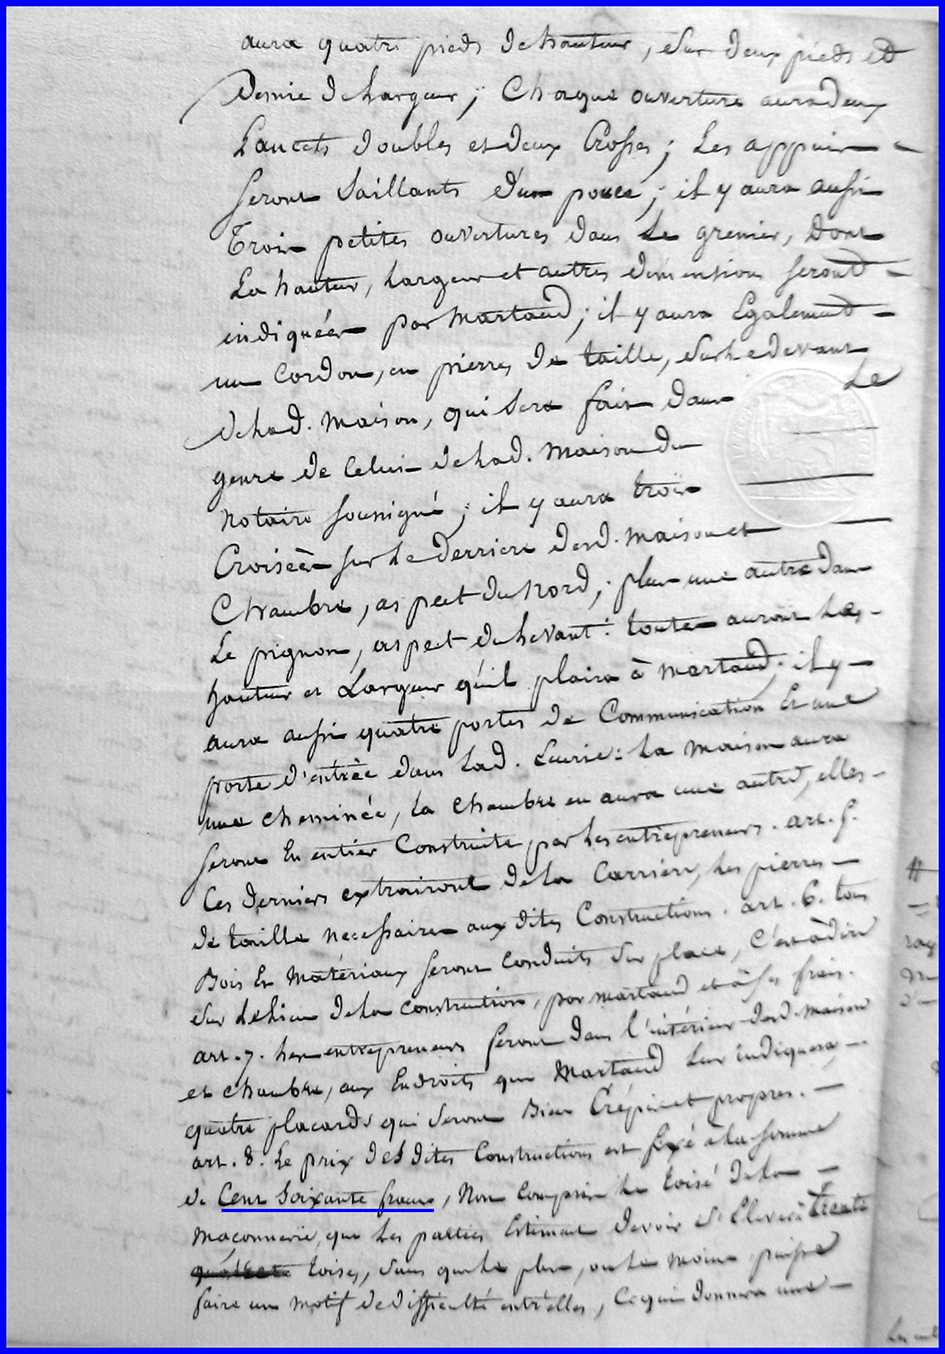 aura quatre pieds de hauteur, sur deux pieds et
demie de largeur; Chaque ouverture aura deux
Lancets doubles et deux Crosses; Les appuis
seront Saillants d'un pouce; il y aura aussi
Trois petites ouvertures dans Le grenier, Dont
La hauteur, Largeur et autres dimensions seront
indiquées par Martaud; il y aura Egalement
un Cordon, en pierres de taille, sur le devant
de lad. maison, qui sera fait dans Le
genre de Celui de lad. maison du
Notaire soussigné; il y aura trois
Croisées sur le derriere desd. maison et
Chambre, aspect du Nord; plus une autre dans
Le pignon, aspect du levant: toutes auront Les
hauteur et Largeur qu'il plaira à Martaud; il y
aura aussi quatre portes de Communication Et une
porte d'entrée dans Lad. Ecurie: La maison aura
une cheminée, La Chambre en aura une autre, elles
seront En entier Construite par les entrepreneurs. art. 5.
Ces derniers extrairont de la Carrière, les pierres
de taille necessaires aux dites Constructions. art. 6. tous
Bois Et Matériaux seront Conduits sur place, C'est à dire
sur le lieu de la Construction, par martaud et à ses frais.
art. 7. Les entrepreneurs feront dans l'intérieur desd. maison
et chambre, aux Endroits que Martaud Leur Indiquera,
quatre placards qui seront Bien Crépis et propres.
art. 8. Le prix des dites Constructions est fixé à la somme
de Cent Soixante francs, Non Compris le toisé de la
maçonnerie, que Les parties Estiment devoir s'Elever à trente
toises, sans que le plus, ou le moins puisse
faire un motif de difficulté entr'elles, Ce qui donnera une